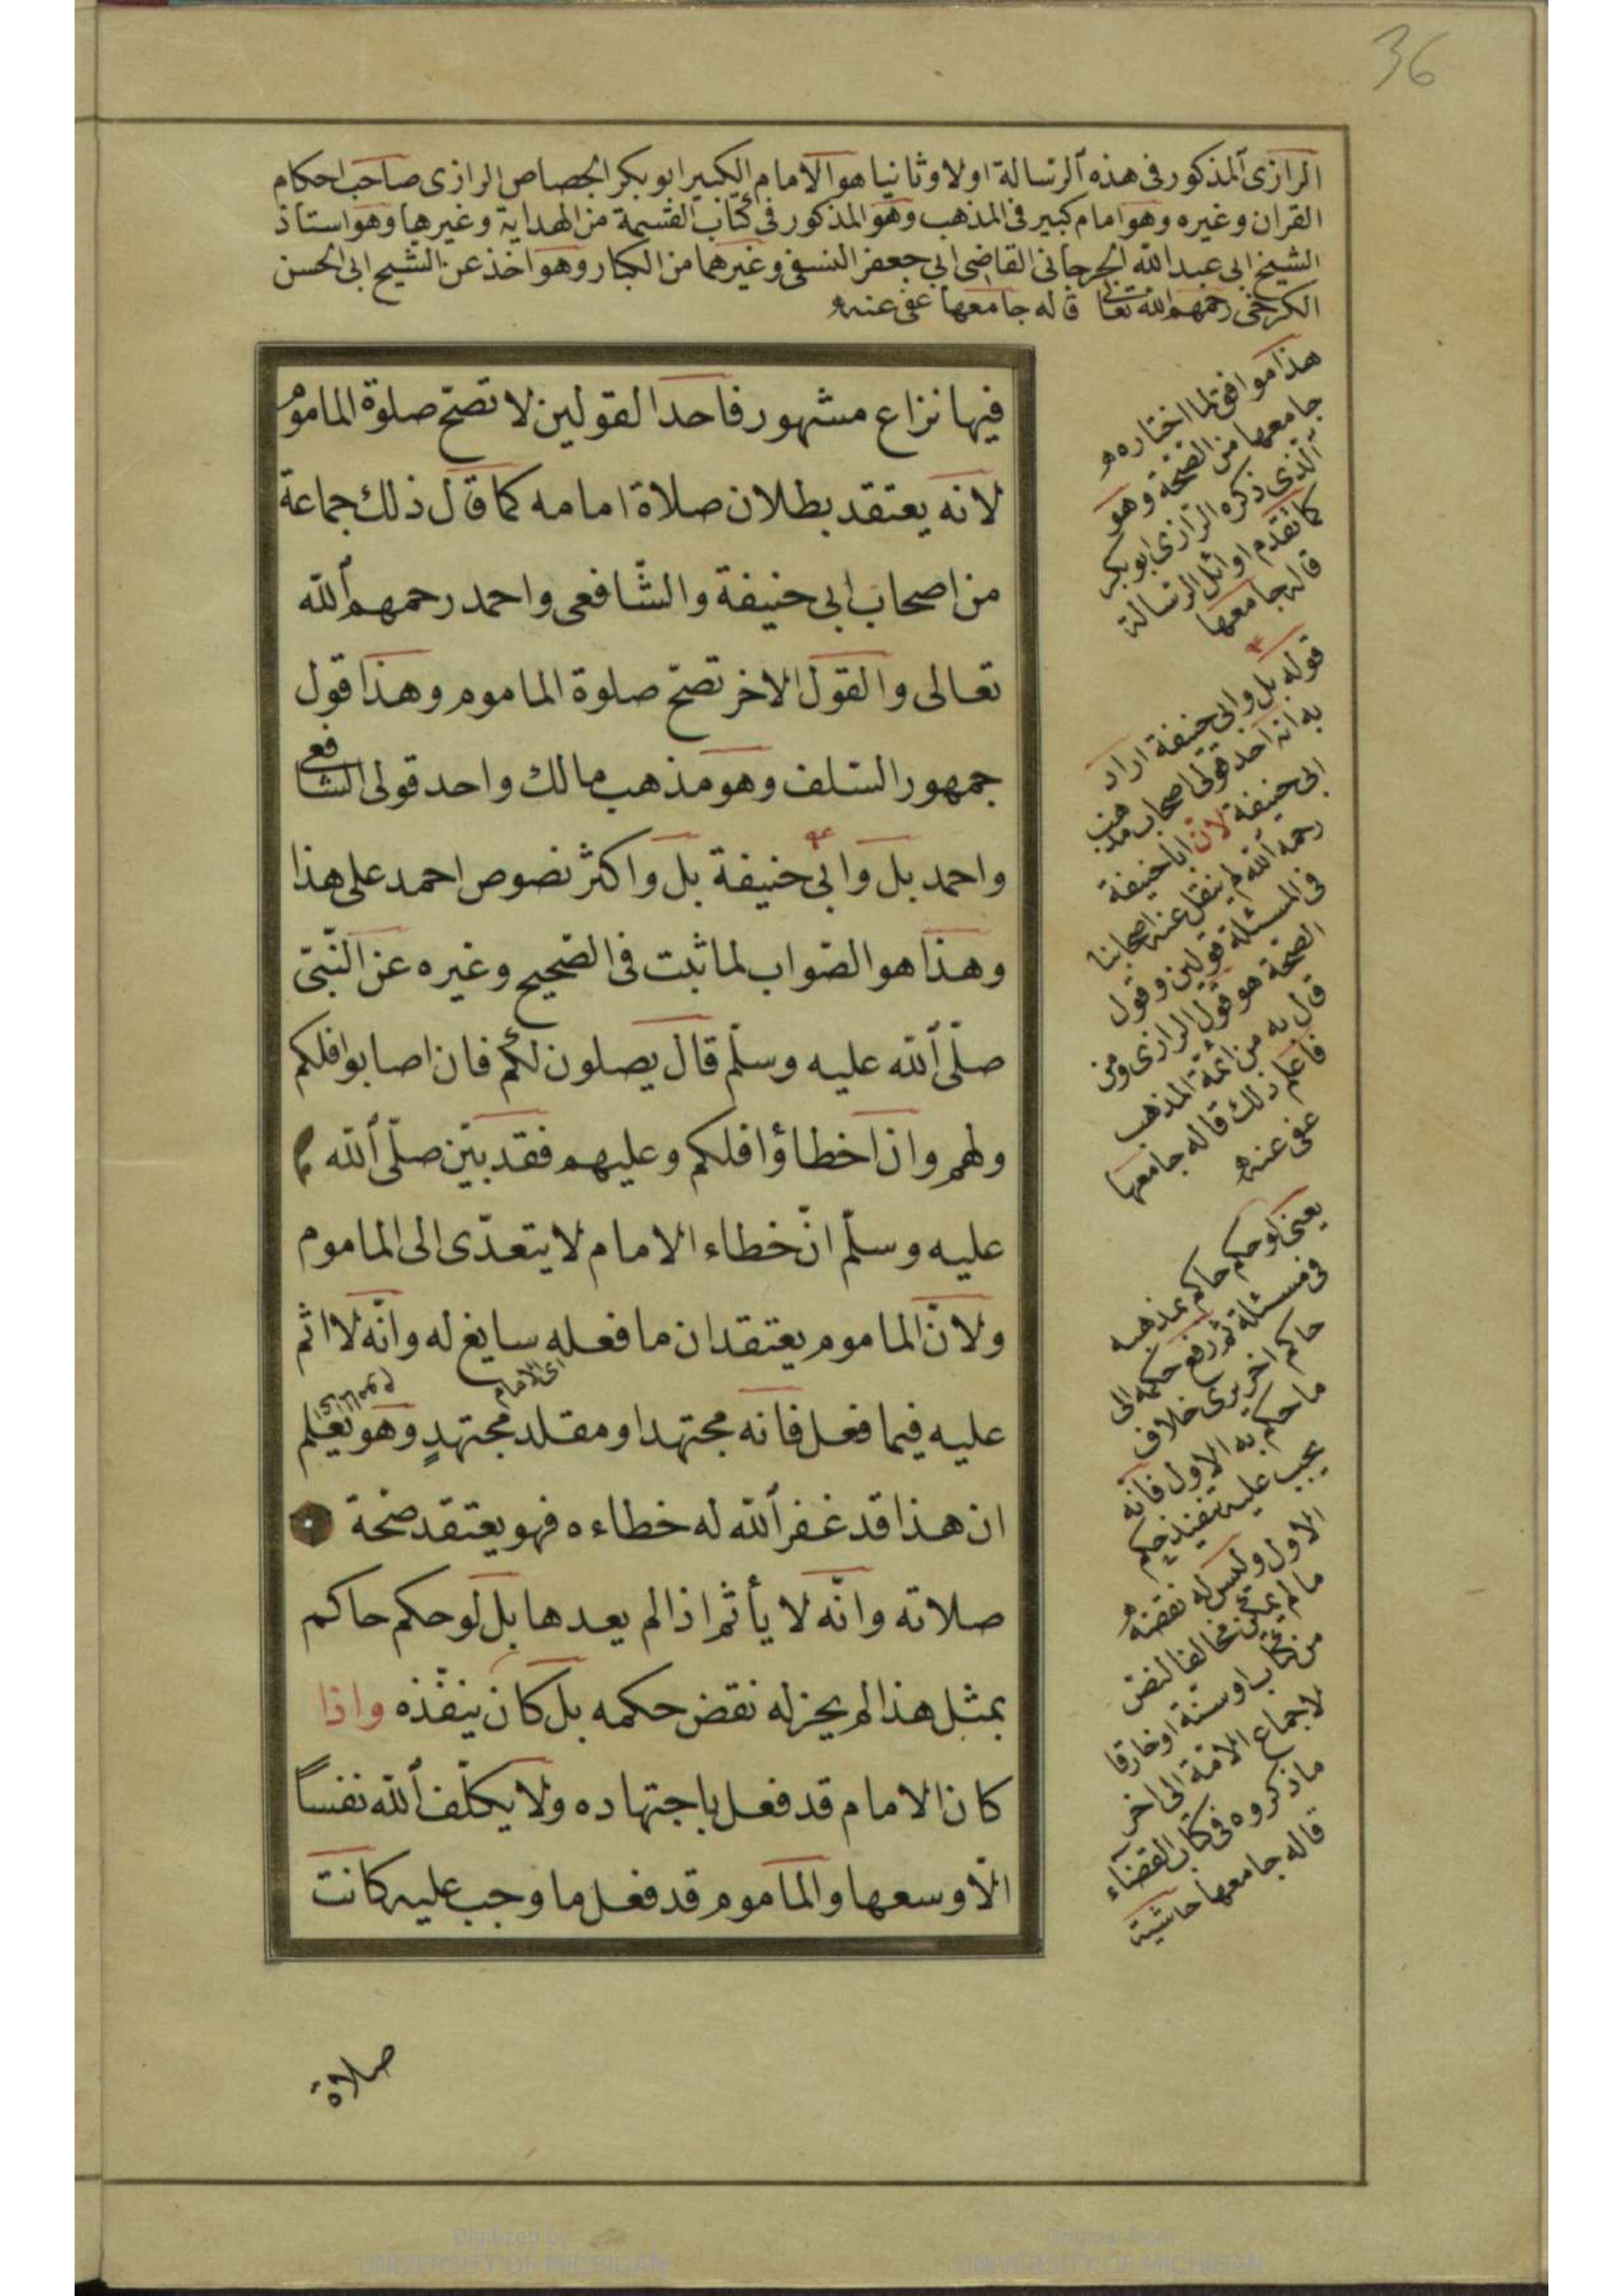 36
الرازى المذكور فى هذه الرسالة اولا وثانيا هو الامام الكبير ابو بكر الجصاص الرازى صاحب احكام
القران وغيره وهو امام كبير فى المذهب وهو المذكور فى كتاب القسمة من الهداية وغيرها وهو استاذ
الشيخ ابى عبد الله الجرجانى القاضى ابى جعفر النسفى وغيرهما من الكبار وهو اخذ عن الشيخ ابى الحسن
الكرخى رحمهم الله تعالى قاله جامعها عفى عنه
فيها نزاع مشهور فاحد القولين لا تصح صلوة الماموم
لانه يعتقد بطلان صلاة امامه كما قال ذلك جماعة
من اصحاب ابى حنيفة والشّافعى واحمد رحمهم الله
تعالى والقول الاخر تصح صلوة الماموم وهذا قول
جمهور السّلف وهو مذهب مالك واحد قولى الشافعى
واحمد بل وابى حنيفة بل واكثر نصوص احمد على هذا
وهذا هو الصّواب لما ثبت فى الصّحيح وغيره عن النّبىّ
صلّى الله عليه وسلّم قال يصلون لكم فان اصابوا فلكم
ولهم وان اخطاؤا فلكم وعليهم فقد بيّن صلّى الله
عليه وسلّم انّ خطاء الامام لا يتعدّى الى الماموم
ولانّ الماموم يعتقد ان ما فعله سايغ له وانّه لا اثم
اى الامام
عليه فيما فعل فانه مجتهد او مقلد مجتهدٍ وهو يعلم
ان هذا قد غفر الله له خطاءه فهو يعتقد صحّة
صلاته وانّه لا يأثم اذا لم يعدها بل لو حكم حاكم
بمثل هذا لم يجز له نقض حكمه بل كان ينفّذه واذا
كان الامام قد فعل باجتهاده ولا يكلّف الله نفساً
الّا وسعها والماموم قد فعل ما وجب عليه كانت
صلاة
هذا موافق لما اختاره
جامعها من الصحّة وهو
الّذى ذكره الرازى ابو بكر
كما تقدم اوائل الرسالة
قاله جامعها
قوله بل وابى حنيفة اراد
به انه احد قولى اصحاب مذهب
ابى حنيفة لانّ ابا حنيفة
رحمه الله لم ينقل عنه اصحابنا
فى المسئلة قولين وقول
الصحّة هو قول الرازى ومن
قال به من ائمة المذهب
فاعلم ذلك قاله جامعها
عفى عنه
يعنى لو حكم حاكم بمذهبه
فى مسئلة ثم رفع حكمه الى
حاكم اخر يرى خلاف
ما حكم به الاول فانّه
يجب عليه تنفيذ حكم
الاول وليس له نقضه
ما لم يكن مخالفا لنص
من كتاب او سنّة او خارقا
لاجماع الامّة الى اخر
ما ذكروه فى كتاب القضاء
قاله جامعها حاشية